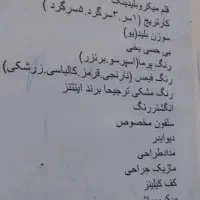 قلم میکروبلیدینگ
کارتریج (۱سر.۳سرگرد.۵سرگرد )
سوزن بلید(یو)
بی حسی یخی
رنگ پرما(اسپرسو.برنزر)
رنگ فیس (نارنجی.قرمز.کالباسی.زرشکی)
رنگ مشکی ترجیحا برند اینتنز
انگشتررنگ
سلفون مخصوص
دیوایدر
مدادطراحی
ماژیک جراحی
کف کلینز